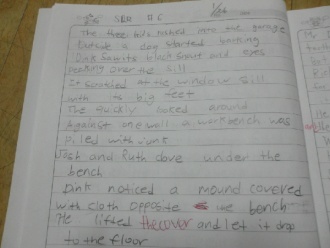 SRR #6
The three kids rushed into the garage
Outside a dog started barking
Dink saw its black snout and eyes
peaking over the sill
It scratched at the window sill
with its big feet
The quickly looked around
Against one wall a workbench was
piled with junk
Josh and Ruth dove under the
bench
Dink noticed a mound covered
with cloth opposite bench
He lifted the cover and let it drop
to the floor